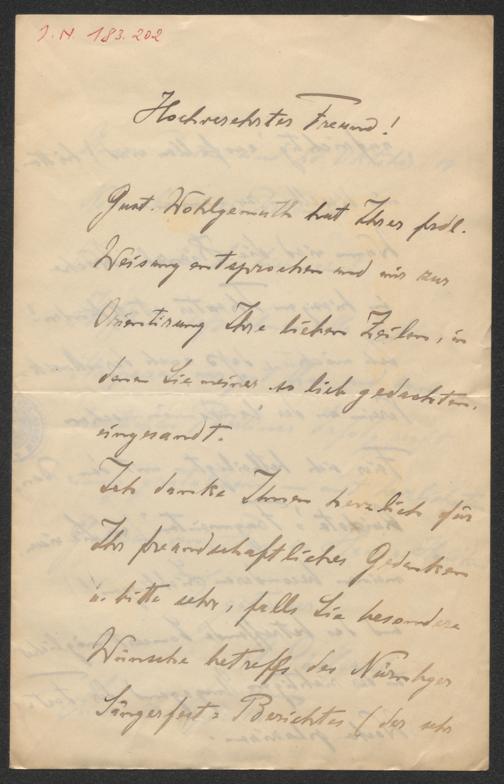 J.N. 183.202
Hochverehrter Freund!
Gust. Wohlgemuth hat Ihrer frdl.
Weisung entsprochen und mir zur
Orientirung Ihre lieben Zeilen, in
denen Sie meiner so lieb gedachten,
eingesandt.
Ich danke Ihnen herzlich für
Ihr freundschaftliches Gedenken
u. bitte sehr, falls Sie besondere
Wünsche betreffs des Nürnbger
Sängerfest=Berichtes (der sehr